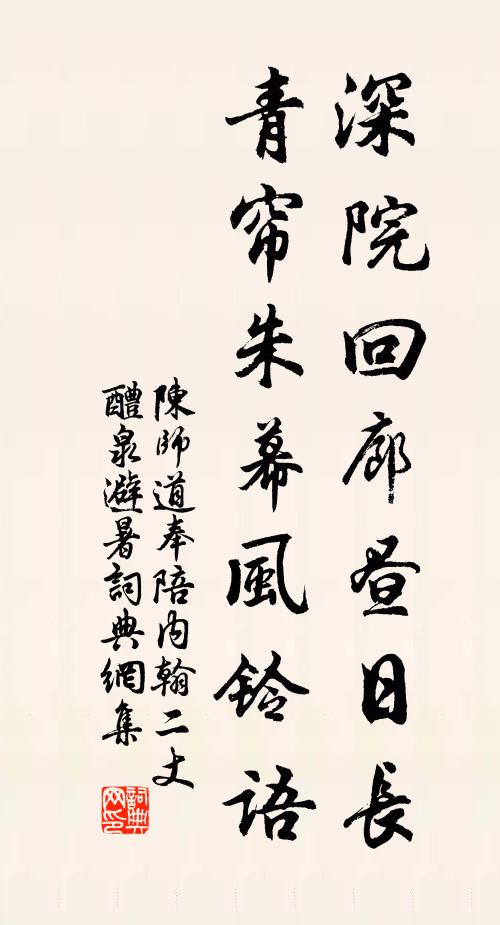 深院回廊昼日長
青帘朱幕風鈴語
陳師道奉陪内翰二丈
醴泉避暑詞典網集
詞典
网印